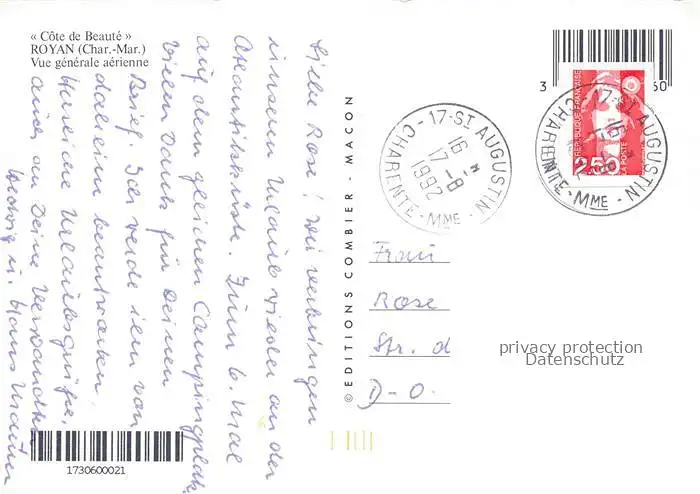 « Côte de Beauté »
ROYAN (Char.-Mar.)
Vue générale aérienne
Liebe Rose! Wir verbringen
unseren Urlaub wieder an der
Atlantikküste. Zum 6. Mal
auf dem gleichen Campingplatz.
Vielen Dank für Deinen
Brief. Ich werde ihn von
daheim beantworten.
Herzliche Urlaubsgrüße,
auch an Deine Verwandten
Hedwig u. Hans
1730600021
© EDITIONS COMBIER MACON
17-ST AUGUSTIN
16 H
17-8
1992
CHARENTE-MME
3
60
RÉPUBLIQUE FRANÇAISE
2,50
LA POSTE
17-ST AUGUSTIN
16
CHARENTE-MME
Frau
Rose
Str. d
D-O.
privacy protection
Datenschutz